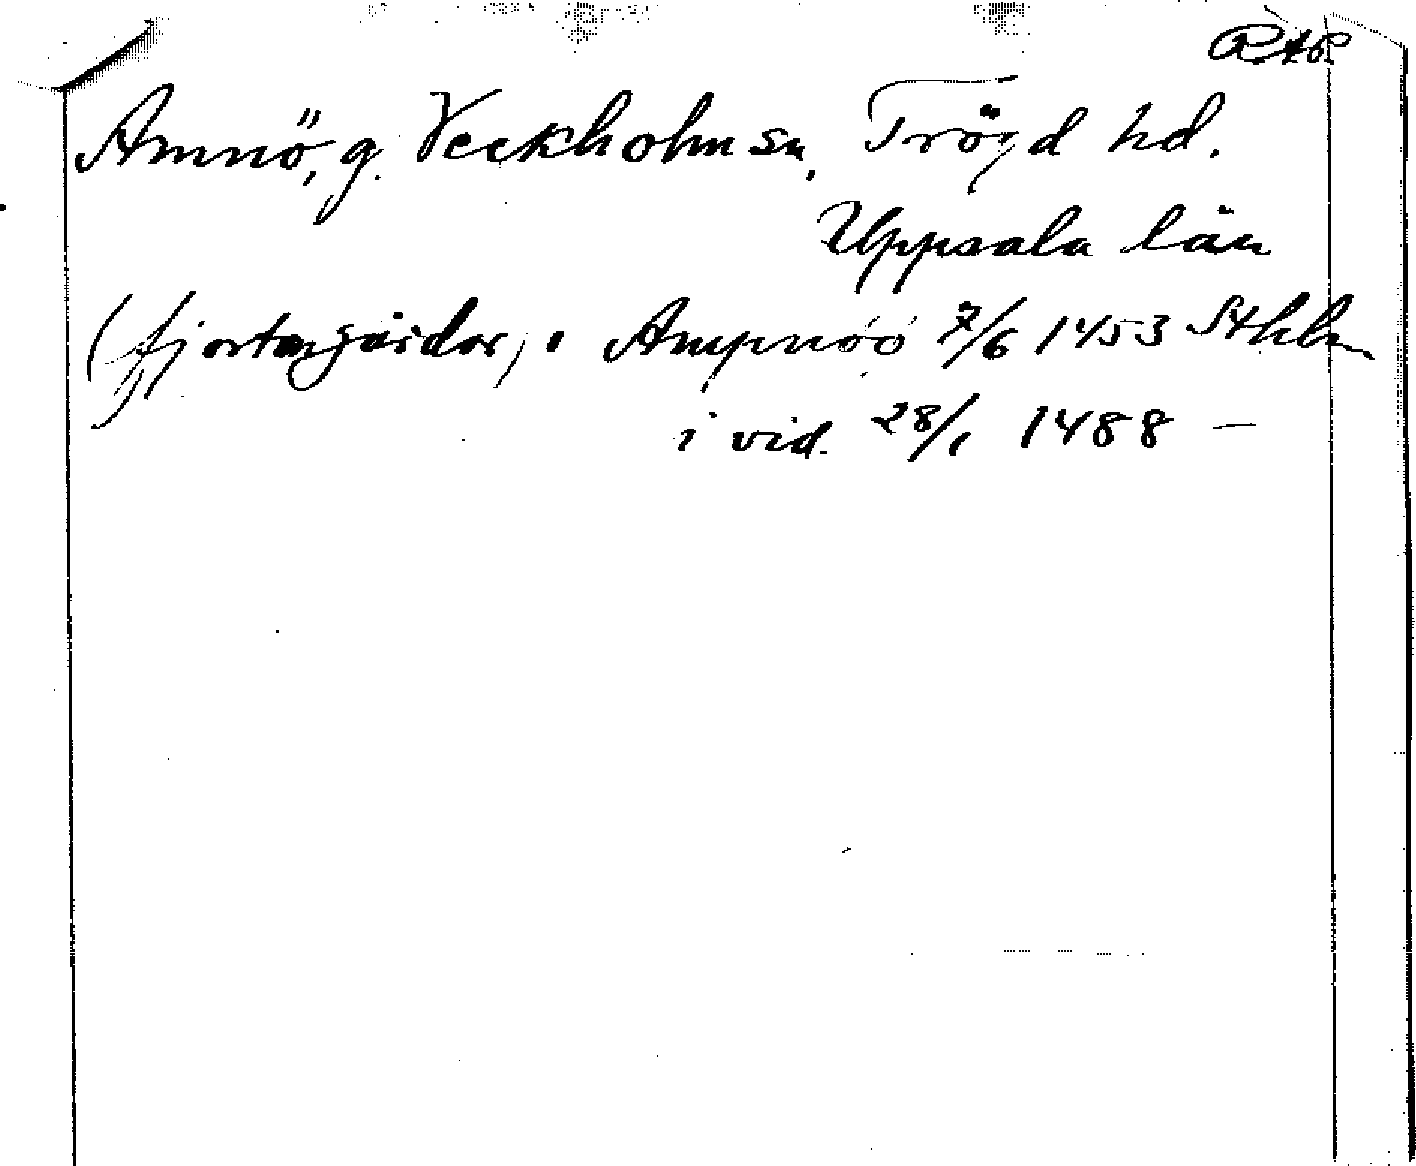 RAP
Amnö, g. Veckholm sn, Trögd hd.
Uppsala län
(fjortongårdar) i Ampnöö 7/6 1453 Sthlm
i vid. 28/1 1488 —